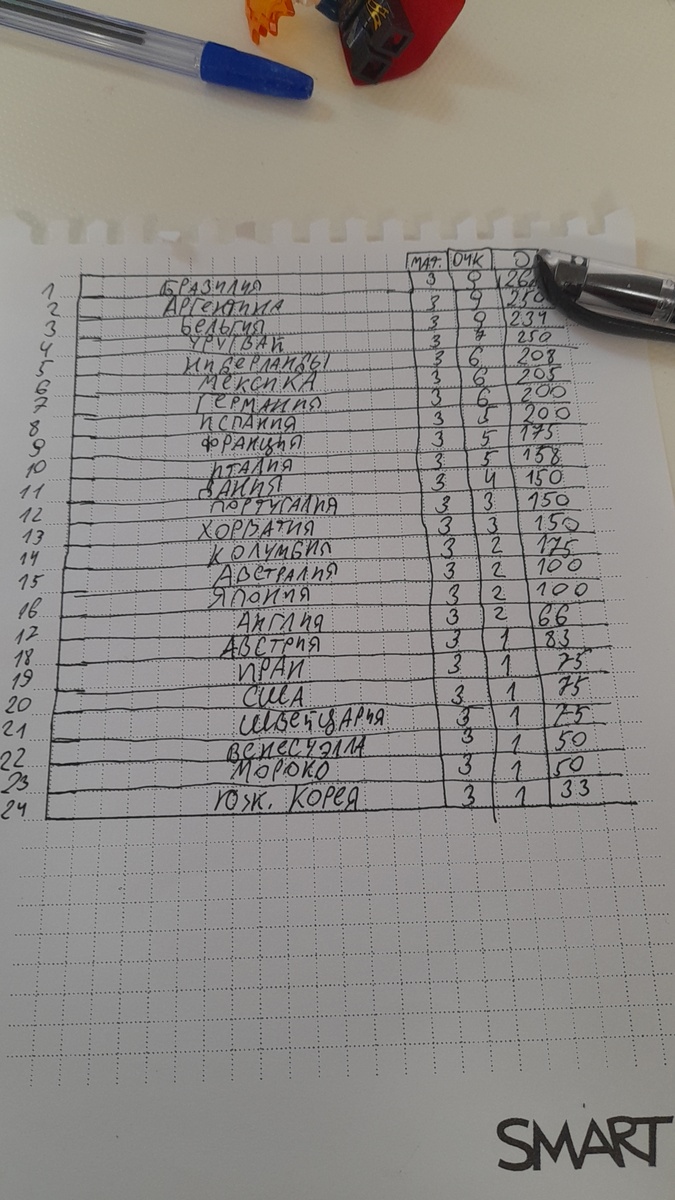 МАТ. ОЧК
1 БРАЗИЛИЯ 3 9
2 АРГЕНТИНА 3 9 250
3 БЕЛЬГИЯ 3 9 234
4 УРУГВАЙ 3 7 250
5 НИДЕРЛАНДЫ 3 6 208
6 МЕКСИКА 3 6 205
7 ГЕРМАНИЯ 3 6 200
8 ИСПАНИЯ 3 5 200
9 ФРАНЦИЯ 3 5 175
10 ИТАЛИЯ 3 5 158
11 ДАНИЯ 3 4 150
12 ПОРТУГАЛИЯ 3 3 150
13 ХОРВАТИЯ 3 3 150
14 КОЛУМБИЯ 3 2 175
15 АВСТРАЛИЯ 3 2 100
16 ЯПОНИЯ 3 2 100
17 АНГЛИЯ 3 2 66
18 АВСТРИЯ 3 1 83
19 ИРАН 3 1 75
20 США 3 1 75
21 ШВЕЙЦАРИЯ 3 1 75
22 ВЕНЕСУЭЛЛА 3 1 50
23 МОРОКО 3 1 50
24 Юж. КОРЕЯ 3 1 33
SMART